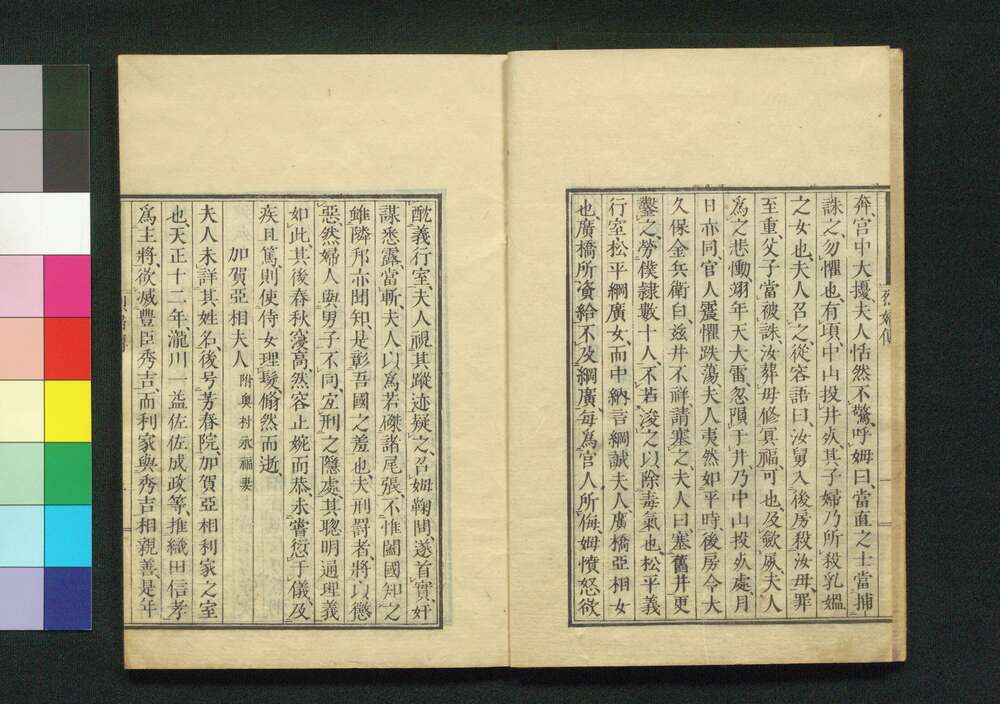 奔宮中大擾夫人恬然不驚呼姆曰當直之士當捕
誅之勿懼也有頃中山投井死其子婦乃所殺乳媼
之女也夫人召之從容語曰汝舅入後房殺汝母罪
至重父子當被誅汝葬母修冥福可也及斂夙夫人
爲之悲慟翊年天大雷忽隕于井乃中山投死處月
日亦同官人震懼跌蕩夫人夷然如平時後房令大
久保金兵衛曰玆井不祥請塞之夫人曰塞舊井更
鑿之勞僕隷數十人不若浚之以除毒氣也松平義
行室松平綱廣女而中納言綱誠夫人廣橋亞相女
也廣橋所資給不及綱廣每爲官人所侮姆憤怒欲
酖義行室夫人視其蹤迹疑之召姆鞠問遂首實奸
謀悉露當斬夫人以爲若傑諸尾張不惟闔國知之
雖隣邦亦聞知是彰吾國之羞也夫刑罸者將以懲
惡然婦人與男子不同宜刑之隱處其聰明過理義
如此其後春秋寖高然容止婉而恭未嘗愆于儀及
疾且篤則使侍女理髮翛然而逝
加賀亞相夫人 附奥村永福妻
夫人未詳其姓名後号芳春院加賀亞相利家之室
也天正十二年瀧川一益佐佐成政等推織田信孝
爲主將欲滅豐臣秀吉而利家與秀吉相親善是年